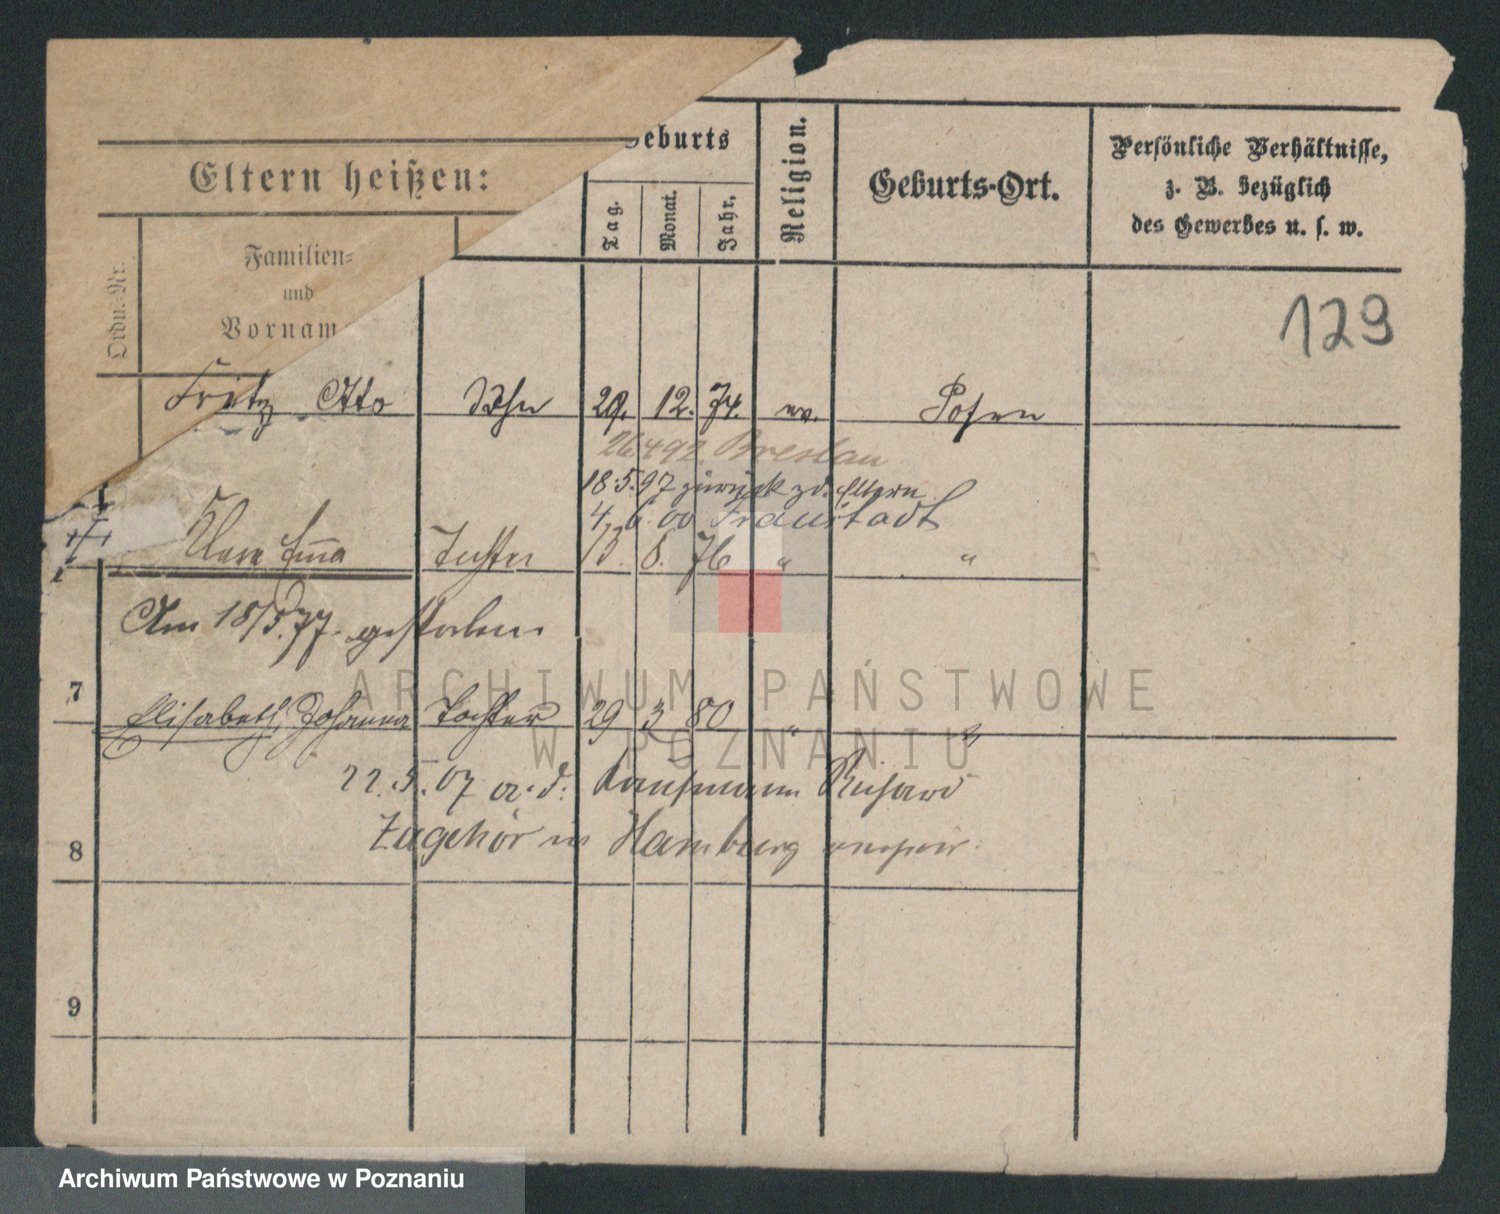 Eltern heißen:
Ordn.-Nr.
Familien-
und
Vornam
Geburts
Tag.
Monat.
Jahr.
Religion.
Geburts-Ort.
Persönliche Verhältnisse,
z. B. bezüglich
des Gewerbes u. s. w.
129
Fritz Otto Sohn 29. 12. 74. ev. Posen
26492 Breslau
18.5.97 zurück zd. Eltern
4. 6. 00 Fraustadt
Clara Emma Tochter 13. 8. 76 " "
Am 18/5.77. gestorben.
7 Elisabeth, Johanna Tochter 29 3 80 " "
22.5.07 a. d. Kaufmann Richard
Zagehör in Hamburg
8
9
ARCHIWUM PAŃSTWOWE
W POZNANIU
Archiwum Państwowe w Poznaniu